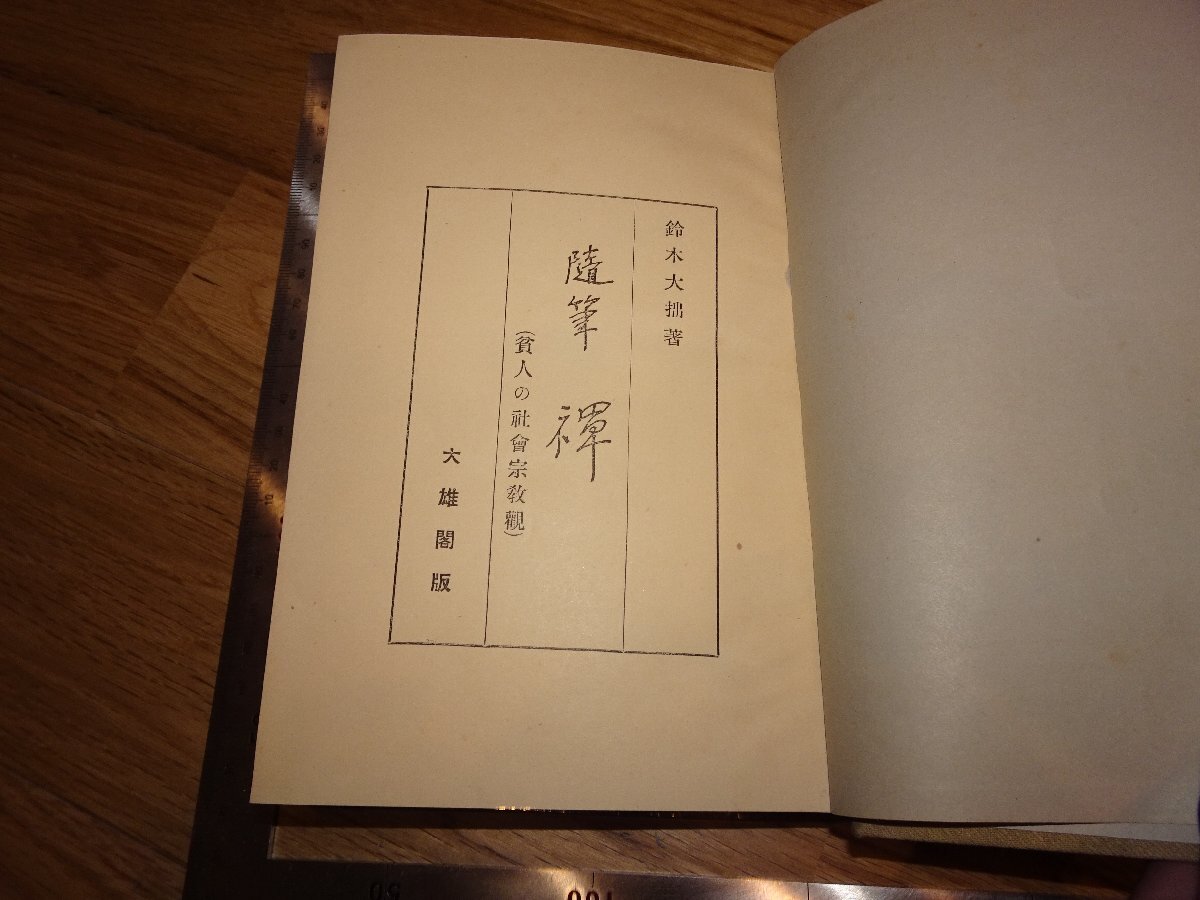 鈴木大拙著
隨筆 禪
(貧人の社會宗教觀)
大雄閣版